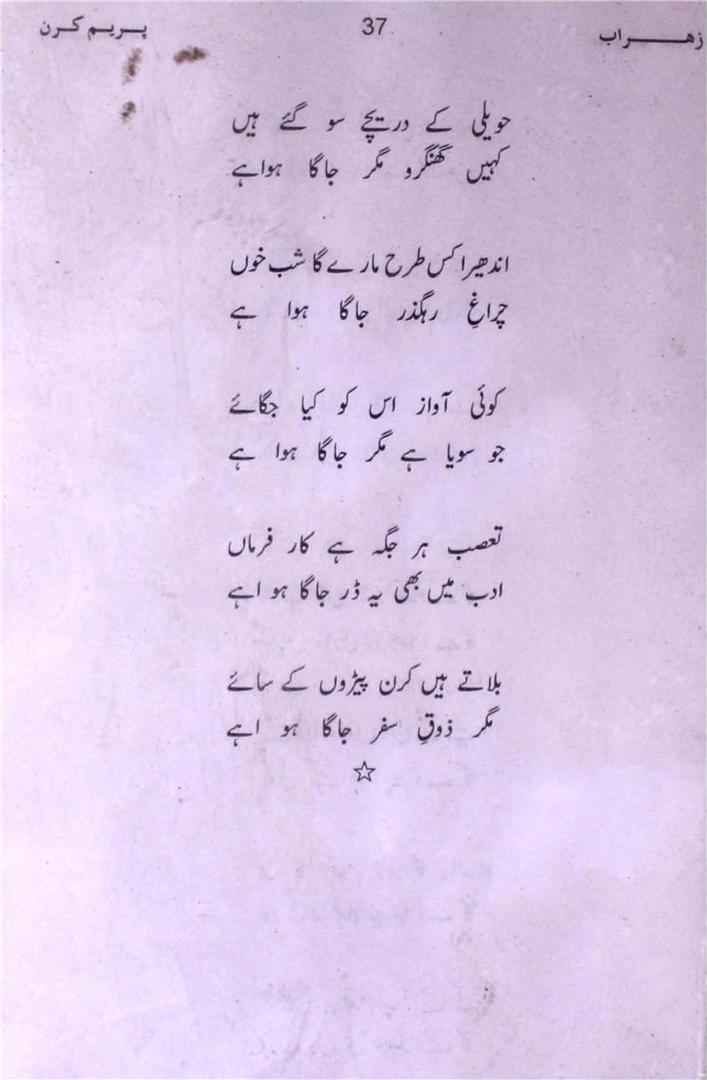 زھراب 37 پریم کرن
حویلی کے دریچے سو گئے ہیں
کہیں گھنگرو مگر جاگا ہواہے
اندھیرا کس طرح مارے گا شب خوں
چراغِ رہگذر جاگا ہوا ہے
کوئی آواز اس کو کیا جگائے
جو سویا ہے مگر جاگا ہوا ہے
تعصب ہر جگہ ہے کار فرماں
ادب میں بھی یہ ڈر جاگا ہو اہے
بلاتے ہیں کرن پیڑوں کے سائے
مگر ذوقِ سفر جاگا ہو اہے